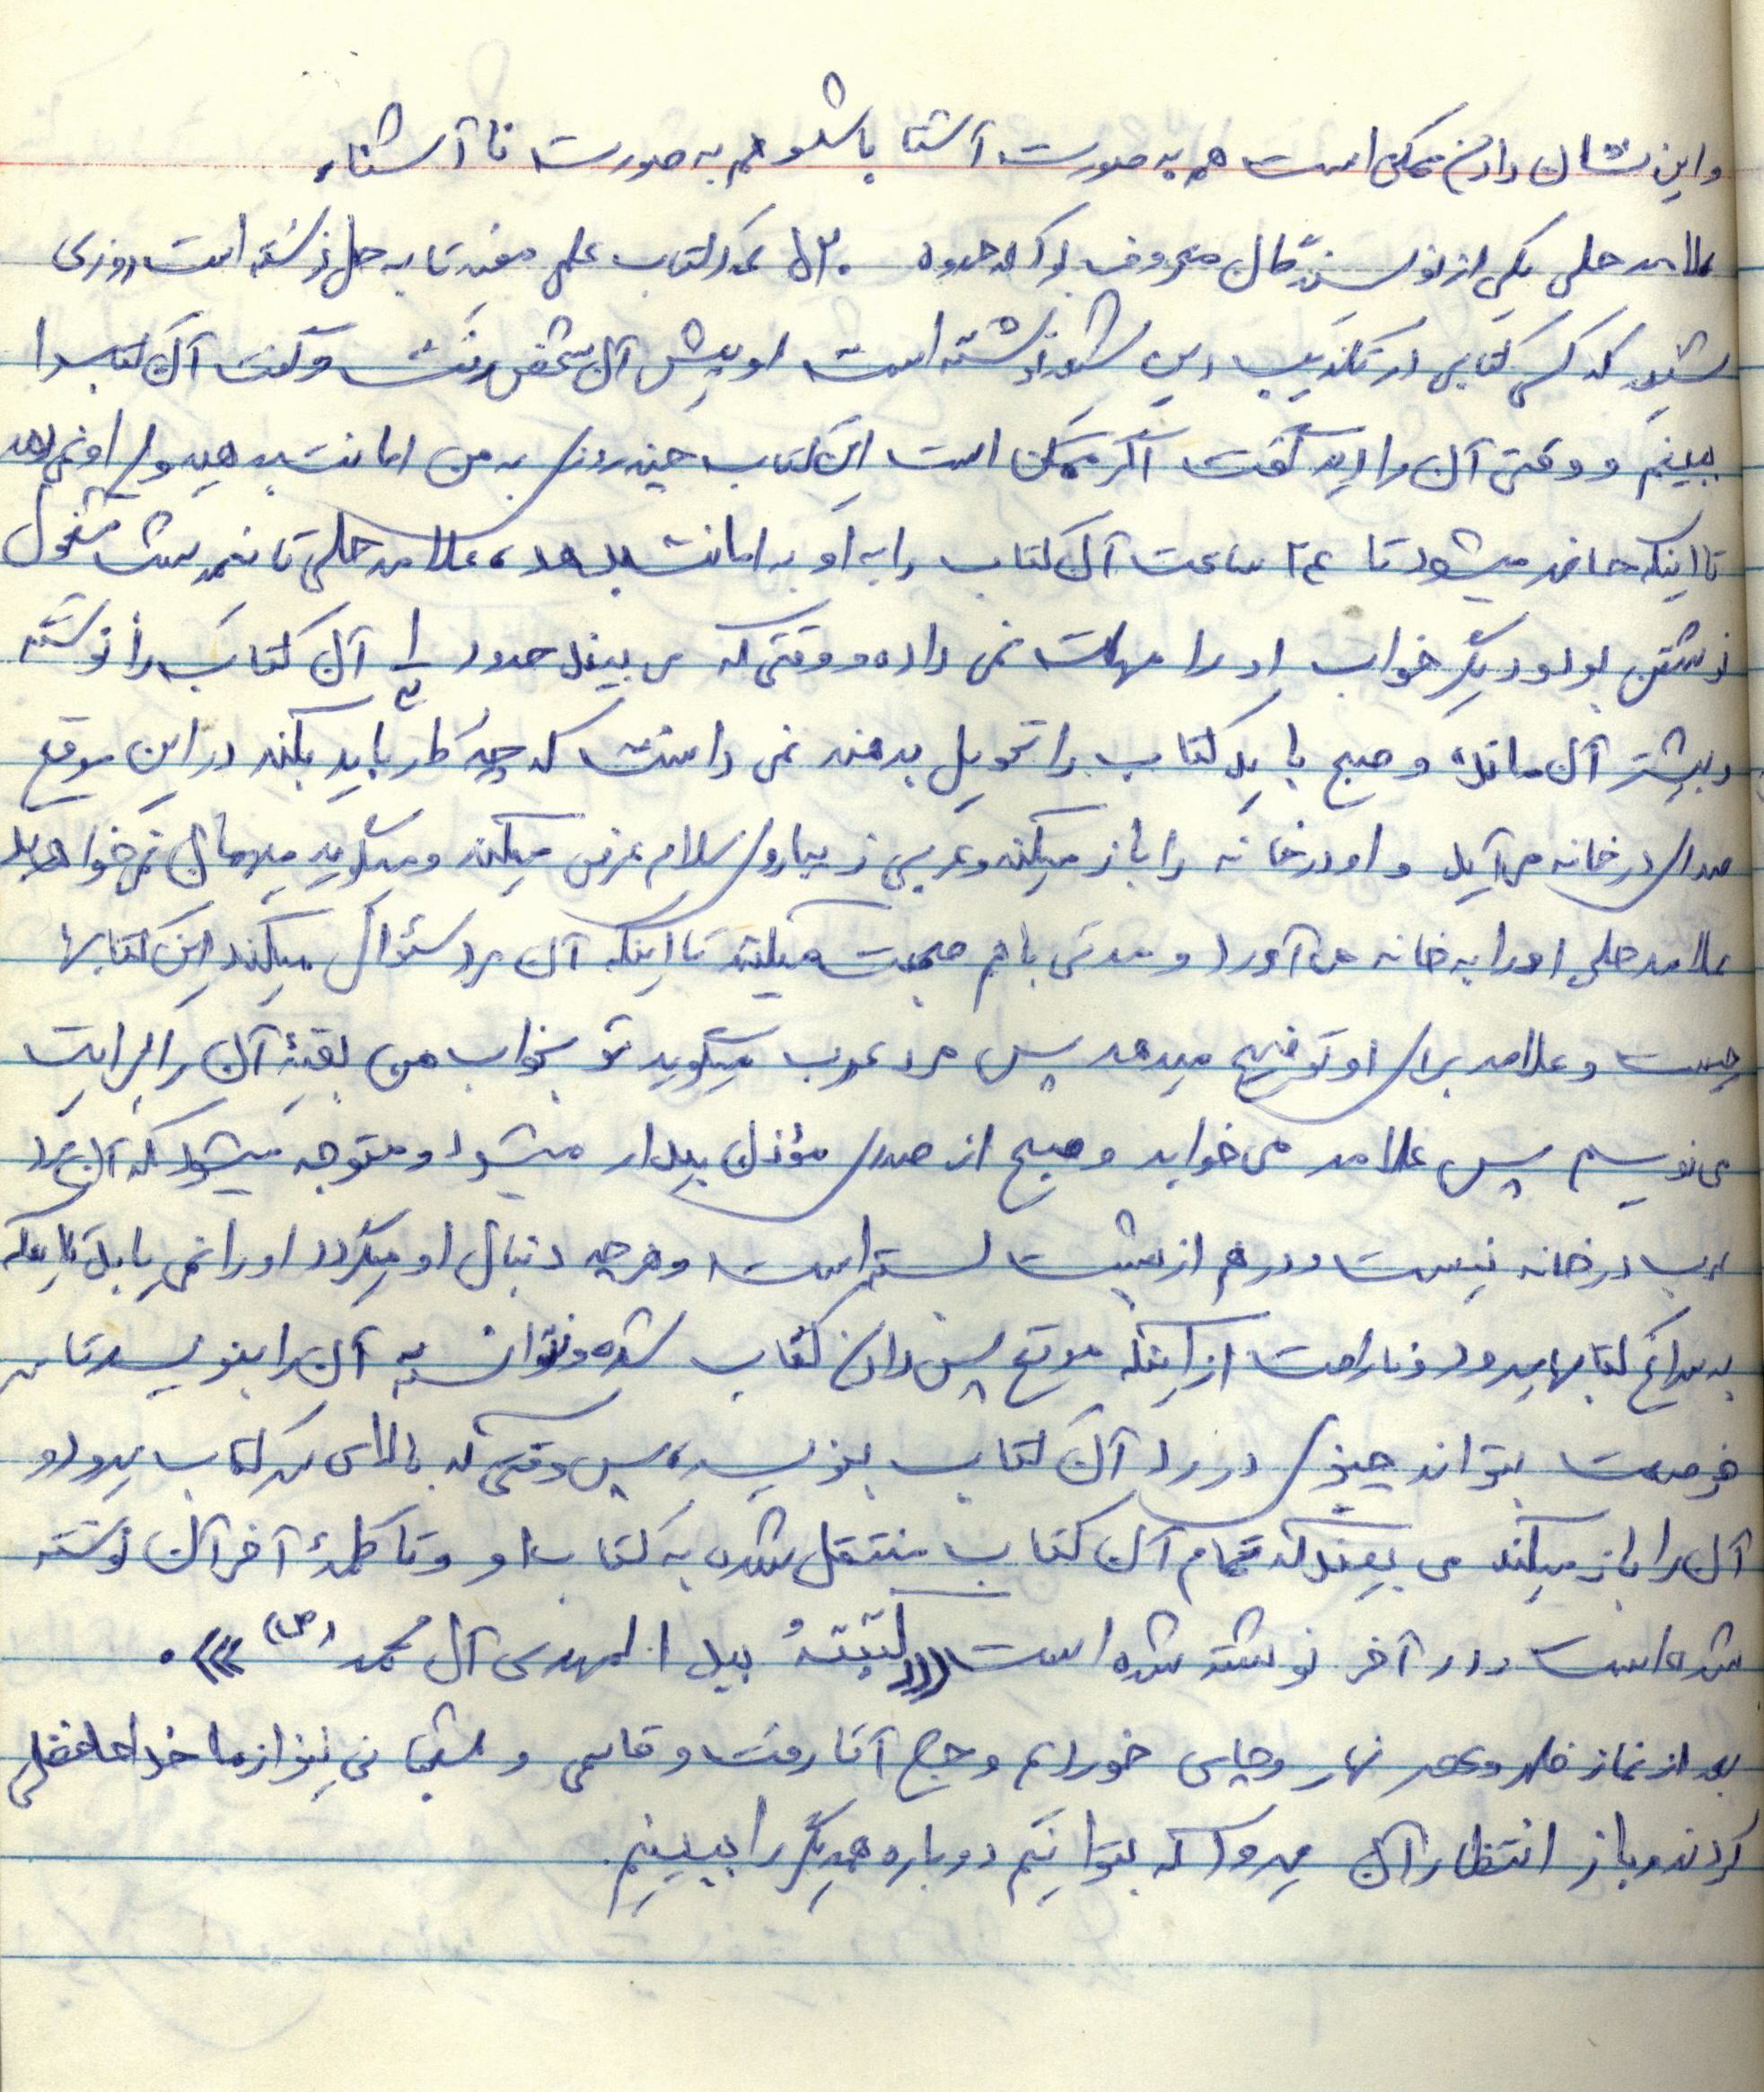 و این نشان دادن ممکن است هم به صورت آشنا باشد و هم به صورت نا آشنا.
علامه حلی یکی از نویسندگان معروف بود که حدود ۵۲۰ عدد کتاب علمی مفید تا به حال نوشته است روزی
شنید که کسی کتابی در تکذیب دین شیعه نوشته است او پیش آن شخص رفت و گفت آن کتاب را
ببینم و وقتی آن را دید گفت اگر ممکن است این کتاب چند روز به من امانت بدهید ولی او نمی‌دهد
تا اینکه حاضر میشود تا ۲۴ ساعت آن کتاب را به او به امانت بدهد، علامه حلی تا نصف شب مشغول
نوشتن بود و دیگر خواب او را مهلت نمی داده و وقتی که می بیند حدود آن کتاب را نوشته
و بیشتر آن مانده و صبح باید کتاب را تحویل بدهند نمی دانست که چه کار باید بکند در این موقع
صدای در خانه می آید و او در خانه را باز میکند و عربی زیبا روی سلام عرض میکند و میگوید میهمان نمی خواهید
علامه حلی او را به خانه می آورد و مدتی با هم صحبت میکنند تا اینکه آن مرد سئوال میکند این کتابها
چیست و علامه برای او توضیح میدهد پس مرد عرب میگوید تو بخواب من بقیهٔ آن را برایت
می نویسم پس علامه می خوابد و صبح از صدای مؤذن بیدار میشود و متوجه میشود که آن مرد
عرب در خانه نیست و در هم از پشت بسته است و هر چه دنبال او میگردد او را نمی یابد تا اینکه
به سراغ کتابها میرود و ناراحت از اینکه موقع پس دادن کتاب شده و نتوانسته آن را بنویسد تا سر
فرصت بتواند چیزی در رد آن کتاب بنویسد، پس وقتی که بالای سر کتاب میرود و
آن را باز میکند می بیند که تمام آن کتاب منتقل شده به کتاب او و تا کلمهٔ آخر آن نوشته
شده است و در آخر نوشته شده است «کتبتهُ بید المهدی آل محمد (ص)».
بعد از نماز ظهر و عصر نهار و چایی خوردیم و حاج آقا رفت و قاسمی و نیز از ما خداحافظی
کردند و باز انتظار آن میرود که بتوانیم دوباره همدیگر را ببینیم.